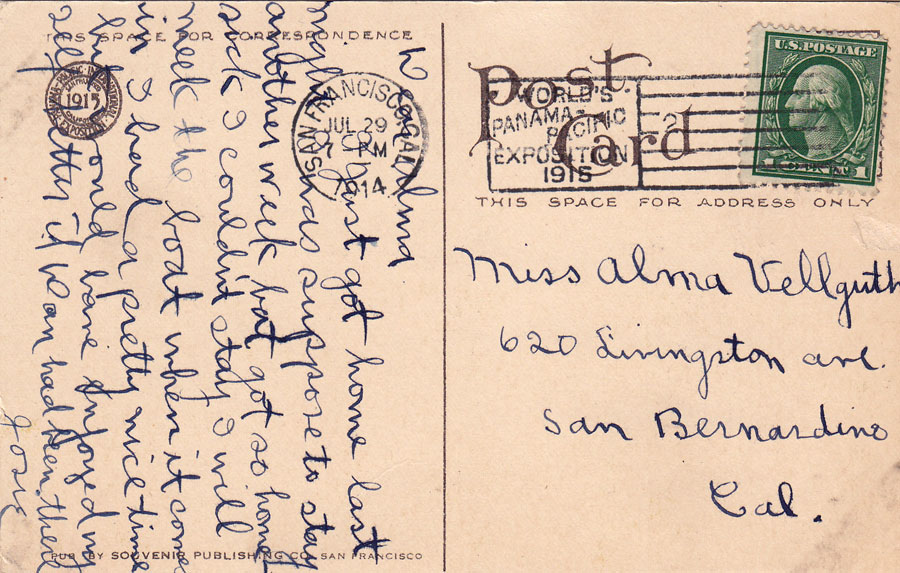 THIS SPACE FOR CORRESPONDENCE
PANAMA-PACIFIC-INTERNATIONAL EXPOSITION
1915
SAN FRANCISCO, CAL.
JUL 29
PM
1914
WORLD'S
PANAMA PACIFIC
EXPOSITION
1915
Post
Card
U.S. POSTAGE
1 1
THIS SPACE FOR ADDRESS ONLY
Miss Alma Vellguth
620 Livingston ave.
San Bernardino
Cal.
Alma
I just got home last
night was suppose to stay
another week but got so home
sick I couldn't stay I will
meet the boat when it comes
in I had a pretty nice time
but would have enjoyed my
self better if had been there
Josie
PUB. BY SOUVENIR PUBLISHING CO. SAN FRANCISCO